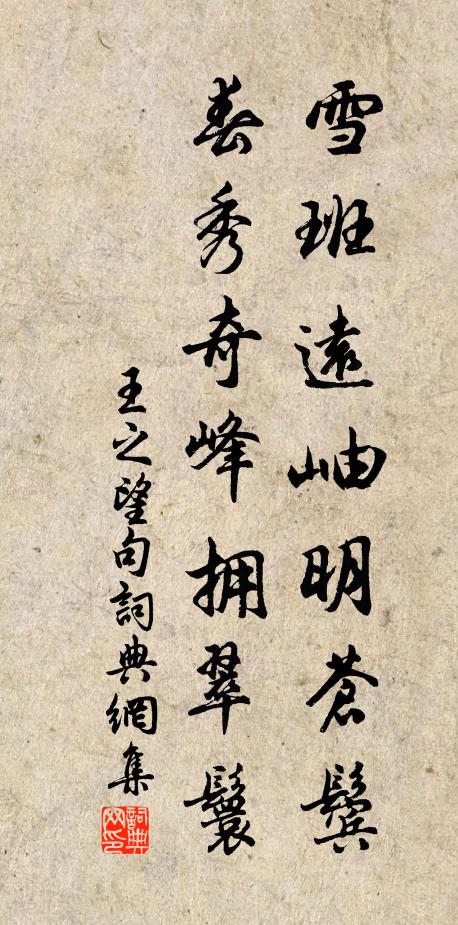 雪班遠岫明蒼鬓
春秀奇峰拥翠鬟
王之望句詞典網集
詞典网印